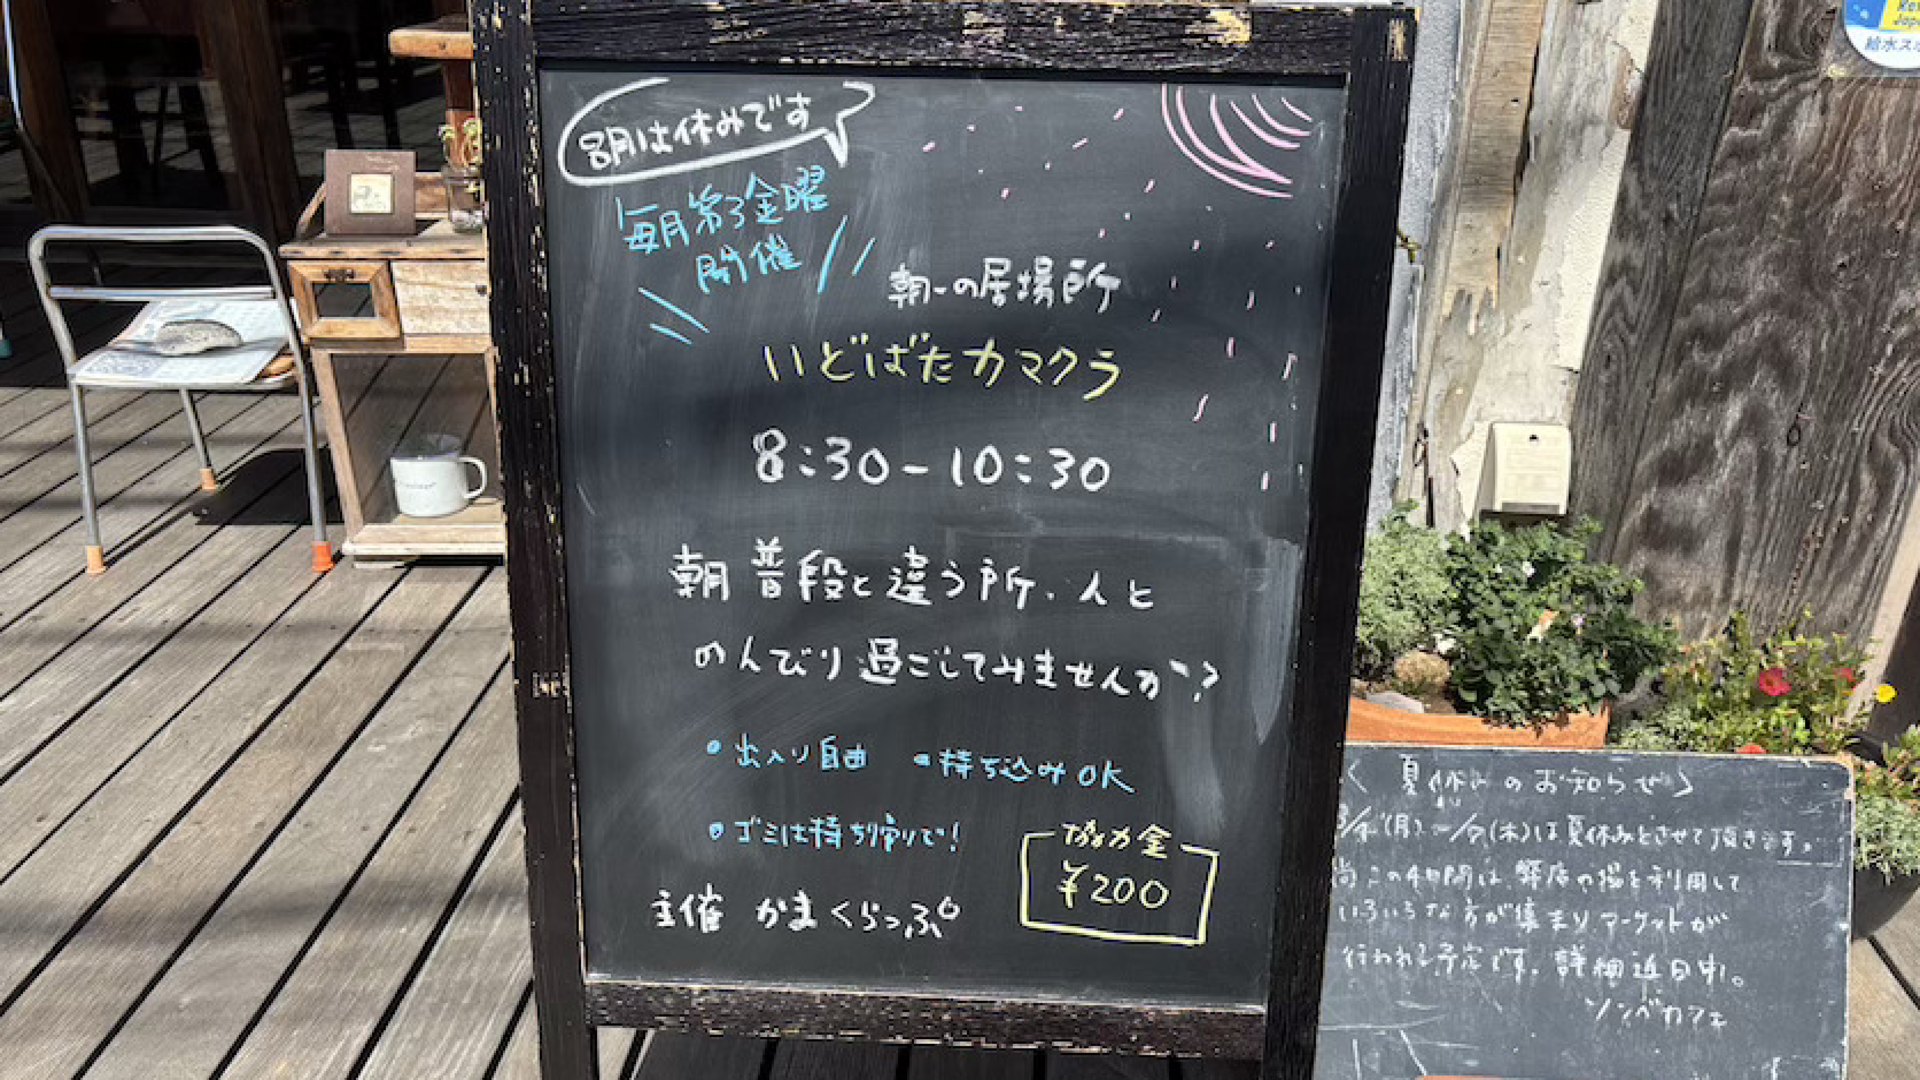 8月は休みです
毎月第3金曜
開催
朝一の居場所
いどばたカマクラ
8:30-10:30
朝 普段と違う所、人と
のんびり過ごしてみませんか?
・出入り自由 ・持ち込みOK
・ゴミは持ち帰りで!
協力金
¥200
主催 かまくらっぷ
給水ス
〈夏休みのお知らせ〉
(月) (木)は夏休みとさせて頂きます。
尚この4日間は、弊店の場を利用して
いろいろな方が集まりマーケットが
行われる予定です。詳細近日中。
ソンベカフェ